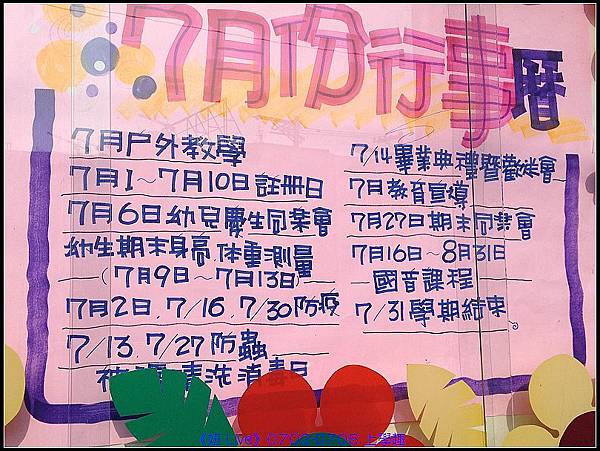 7月份行事曆
7月戶外教學
7月1～7月10日註冊日
7月6日幼兒慶生同樂會
幼生期末身高、體重測量
(7月9日～7月13日)
7月2日.7/16.7/30防疫
7/13.7/27防蟲
清洗消毒日
7/14畢業典禮暨歡送會
7月教育宣導
7月27日期末同樂會
7月16日～8月31日
國音課程
7/31學期結束